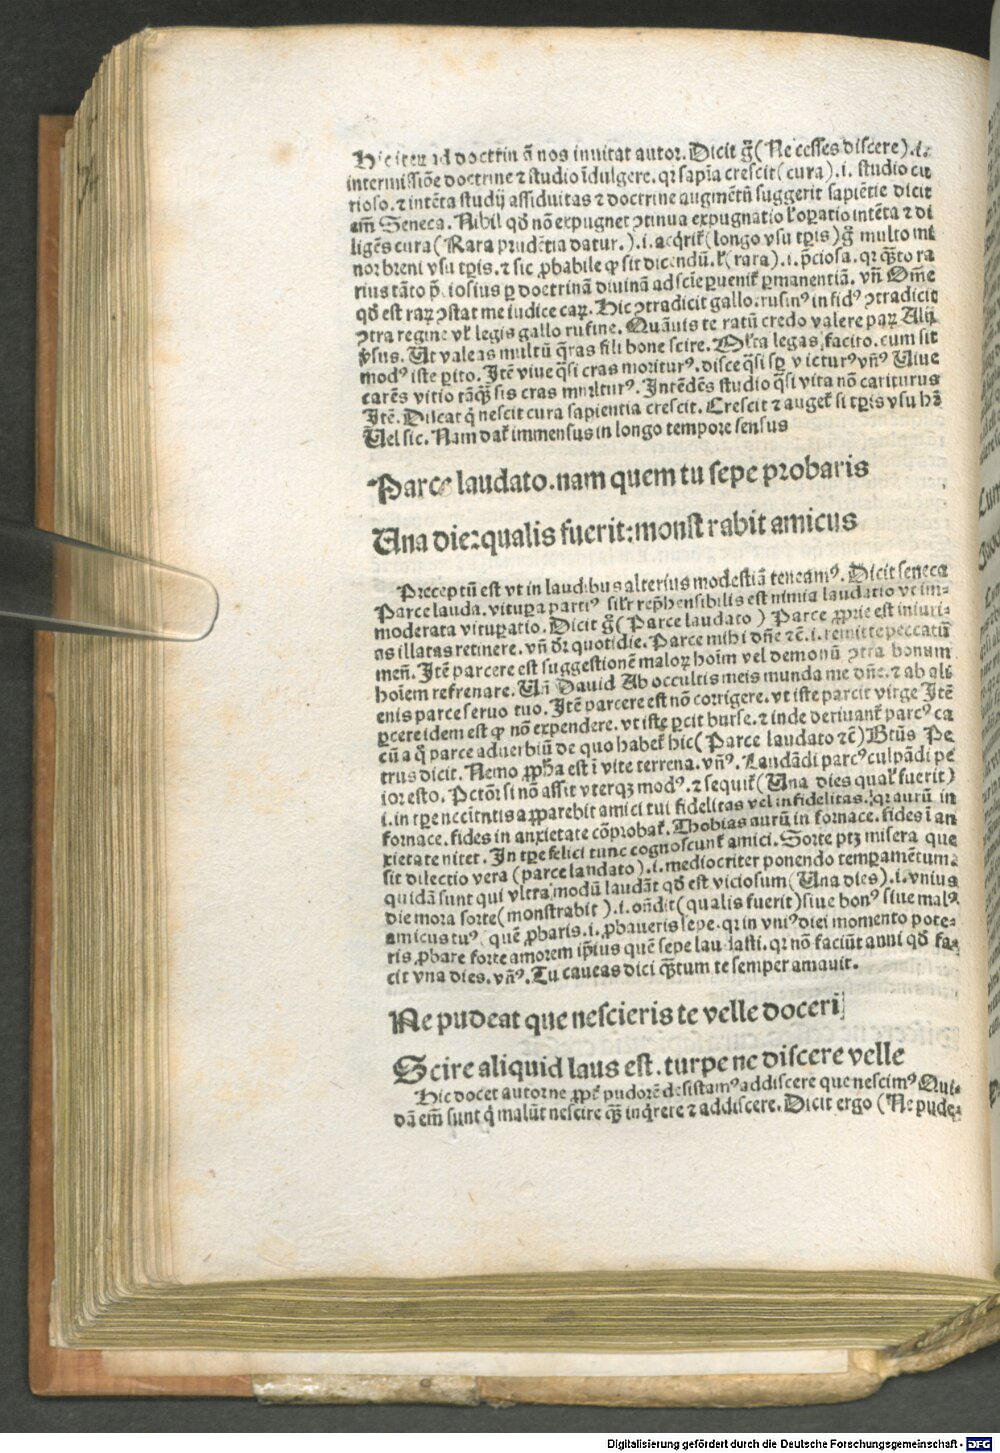 Hic iteꝝ ad doctrinã nos inuitat autor. Dicit g̃ (Ne cesses discere) .i.
intermissiõe doctrine ⁊ studio ĩdulgere. qꝛ sapĩa crescit (cura) .i. studio cu
rioso. ⁊ intẽta studij assiduitas ⁊ doctrine augmẽtũ suggerit sapiẽtie dicit
em̃ Seneca. Nihil qð nõ expugnet ꝯtinua expugnatio ł oꝑatio intẽta ⁊ di
ligẽs cura (Rara prudẽtia datur.) .i. acq̃rit̃ (longo vsu tꝑis) g̃ multo mi
nor breui vsu tꝑis. ⁊ sic ꝓbabile ꝙ sit dicendũ. ł (rara) .i. p̃ciosa. qꝛ q̃ꝫto ra
rius tãto p̃ciosius ꝑ doctrinã diuinã ad scĩe ꝑuenit̃ ꝑmanentiã. vñ Om̃e
qð est raꝝ ꝯstat me iudice caꝝ. Hic ꝯtradicit gallo. rufinꝰ in fidꝰ ꝯtradicit
ꝯtra regine vł legis gallo rufine. Quãuis te ratũ credo valere paꝝ Alij
v̓sus. Ut valeas multũ q̃ras fili bone scire. Mĺta legas facito. cum sit
modꝰ iste ꝑito. Itẽ viue q̃si cras moriturꝰ. disce q̃si sꝑ victurꝰ vñꝰ Viue
carẽs vitio tãq̃ꝫ sis cras moriturꝰ. Intẽdẽs studio q̃si vita nõ cariturus
Itẽ. Discat q̃ nescit cura sapientia crescit. Crescit ⁊ auget̃ si tꝑis vsu hẽt
Uel sic. Nam dat̃ immensus in longo tempore sensus
Parce laudato. nam quem tu sepe probaris
Una dies qualis fuerit: monstrabit amicus
Preceptũ est vt in laudibus alterius modestiã teneamꝰ. Dicit seneca
Parce lauda. vituꝑa partiꝰ sił̃r rep̃hensibilis est nimia laudatio vt im-
moderata vituꝑatio. Dicit g̃ (Parce laudato) Parce ꝓprie est iniuri-
as illatas retinere. vñ dr̃ quotidie. Parce mihi dñe ⁊c̃ .i. remitte peccatũ
meũ. Itẽ parcere est suggestionẽ maloꝝ hoĩm vel demonũ ꝯtra bonum
hoĩem refrenare. Uñ Dauid Ab occultis meis munda me dñe. ⁊ ab ali
enis parce seruo tuo. Itẽ parcere est nõ corrigere. vt iste parcit virge Itẽ
ꝑcere idem est ꝙ nõ expendere. vt iste ꝑcit burse. ⁊ inde deriuant̃ parcꝰ ca
cũ a q̃ parce aduerbiũ de quo habet̃ hic (Parce laudato ⁊c̃) Btũs Pe
trus dicit. Nemo ꝓpħa est ĩ vite terrena. vñꝰ. Laudãdi parcꝰ culpãdi pe
ior esto. Pctõr si nõ assit vterqꝫ modꝰ. ⁊ sequit̃ (Una dies qual̃ fuerit)
.i. in tꝑe necĩtatis apparebit amici tui fidelitas vel infidelitas. qꝛ aurũ in
fornace. fides in anxietate cõprobat̃. Thobias aurũ in fornace. fides ĩ an
xietate nitet. In tꝑe felici tunc cognoscunt̃ amici. Sorte ptꝫ misera que
sit dilectio vera (parce laudato) .i. mediocriter ponendo temꝑamẽtum.
quidã sunt qui vltra modũ laudãt qð est viciosum (Una dies) .i. vnius
die mora sorte (monstrabit) .i. oñdit (qualis fuerit) siue bonꝰ siue malꝰ.
amicus tuꝰ (quẽ ꝓbaris .i. ꝓbaueris sepe. qꝛ in vniꝰ diei momento pote-
ris ꝓbare forte amorem ip̃ius quẽ sepe laudasti. qꝛ nõ faciũt anni qð fa-
cit vna dies. vñꝰ. Tu caueas dici q̃ꝫtum te semper amauit.
Ne pudeat que nescieris te velle doceri
Scire aliquid laus est. turpe ne discere velle
Hic docet autor ne ꝓpt̃ pudorẽ desistamꝰ addiscere que nescimꝰ Qui-
dã em̃ sunt q̃ malũt nescire q̃ꝫ inq̃rere ⁊ addiscere. Dicit ergo (Ne pude-
Digitalisierung gefördert durch die Deutsche Forschungsgemeinschaft - DFG